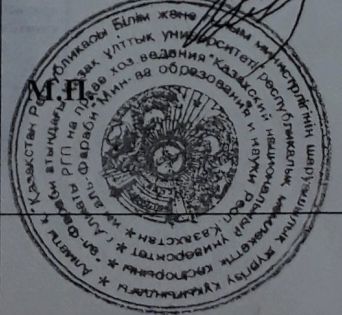 М.П.
Қазақстан Республикасы Білім және ғылым министрлігінің шаруашылық жүргізу құқығындағы * Алматы қ.
"әл-Фараби атындағы Қазақ ұлттық университеті" республикалық мемлекеттік кәсіпорыны *
г. Алматы РГП на праве хоз ведения "Казахский национальный университет
им аль-Фараби" Мин-ва образования и науки Респ Казахстан *